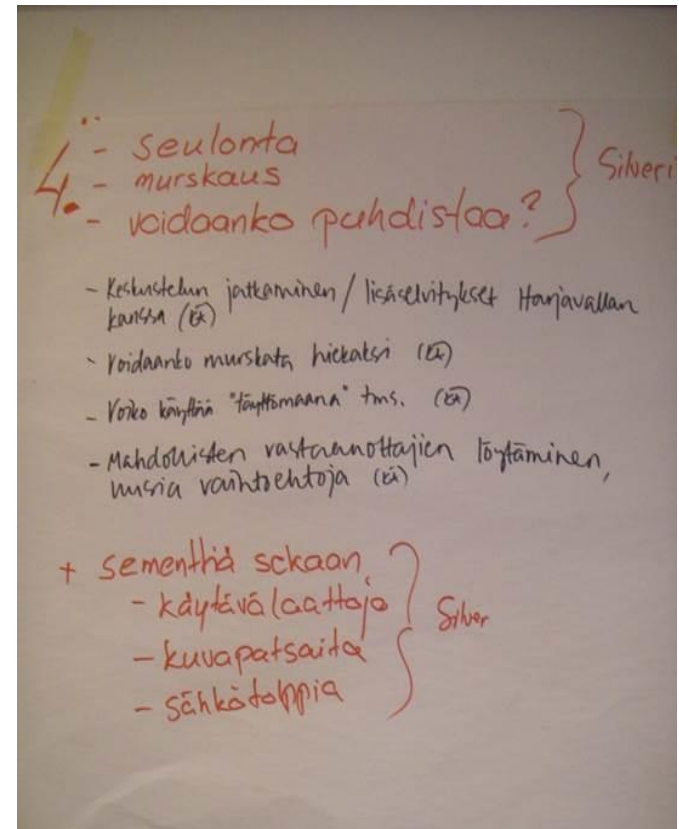 4.
- seulonta
- murskaus
- voidaanko puhdistaa?
Silveri
- Keskustelun jatkaminen / lisäselvitykset Harjavallan
kanssa (EA)
- Voidaanko murskata hiekaksi (EA)
- Voiko käyttää "täyttömaana" tms. (EA)
- Mahdollisten vastaanottajien löytäminen,
uusia vaihtoehtoja (EA)
+ sementtiä sekaan,
- käytävälaattoja
- kuvapatsaita
- sähkötolppia
Silver